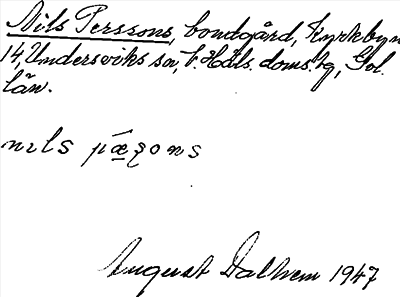 Nils Perssons, bondgård, Kyrkbyn
14, Undersviks sn, V. Häls. doms. hg, Gvl.
län.
nils pæʂons
August Dalhem 1947